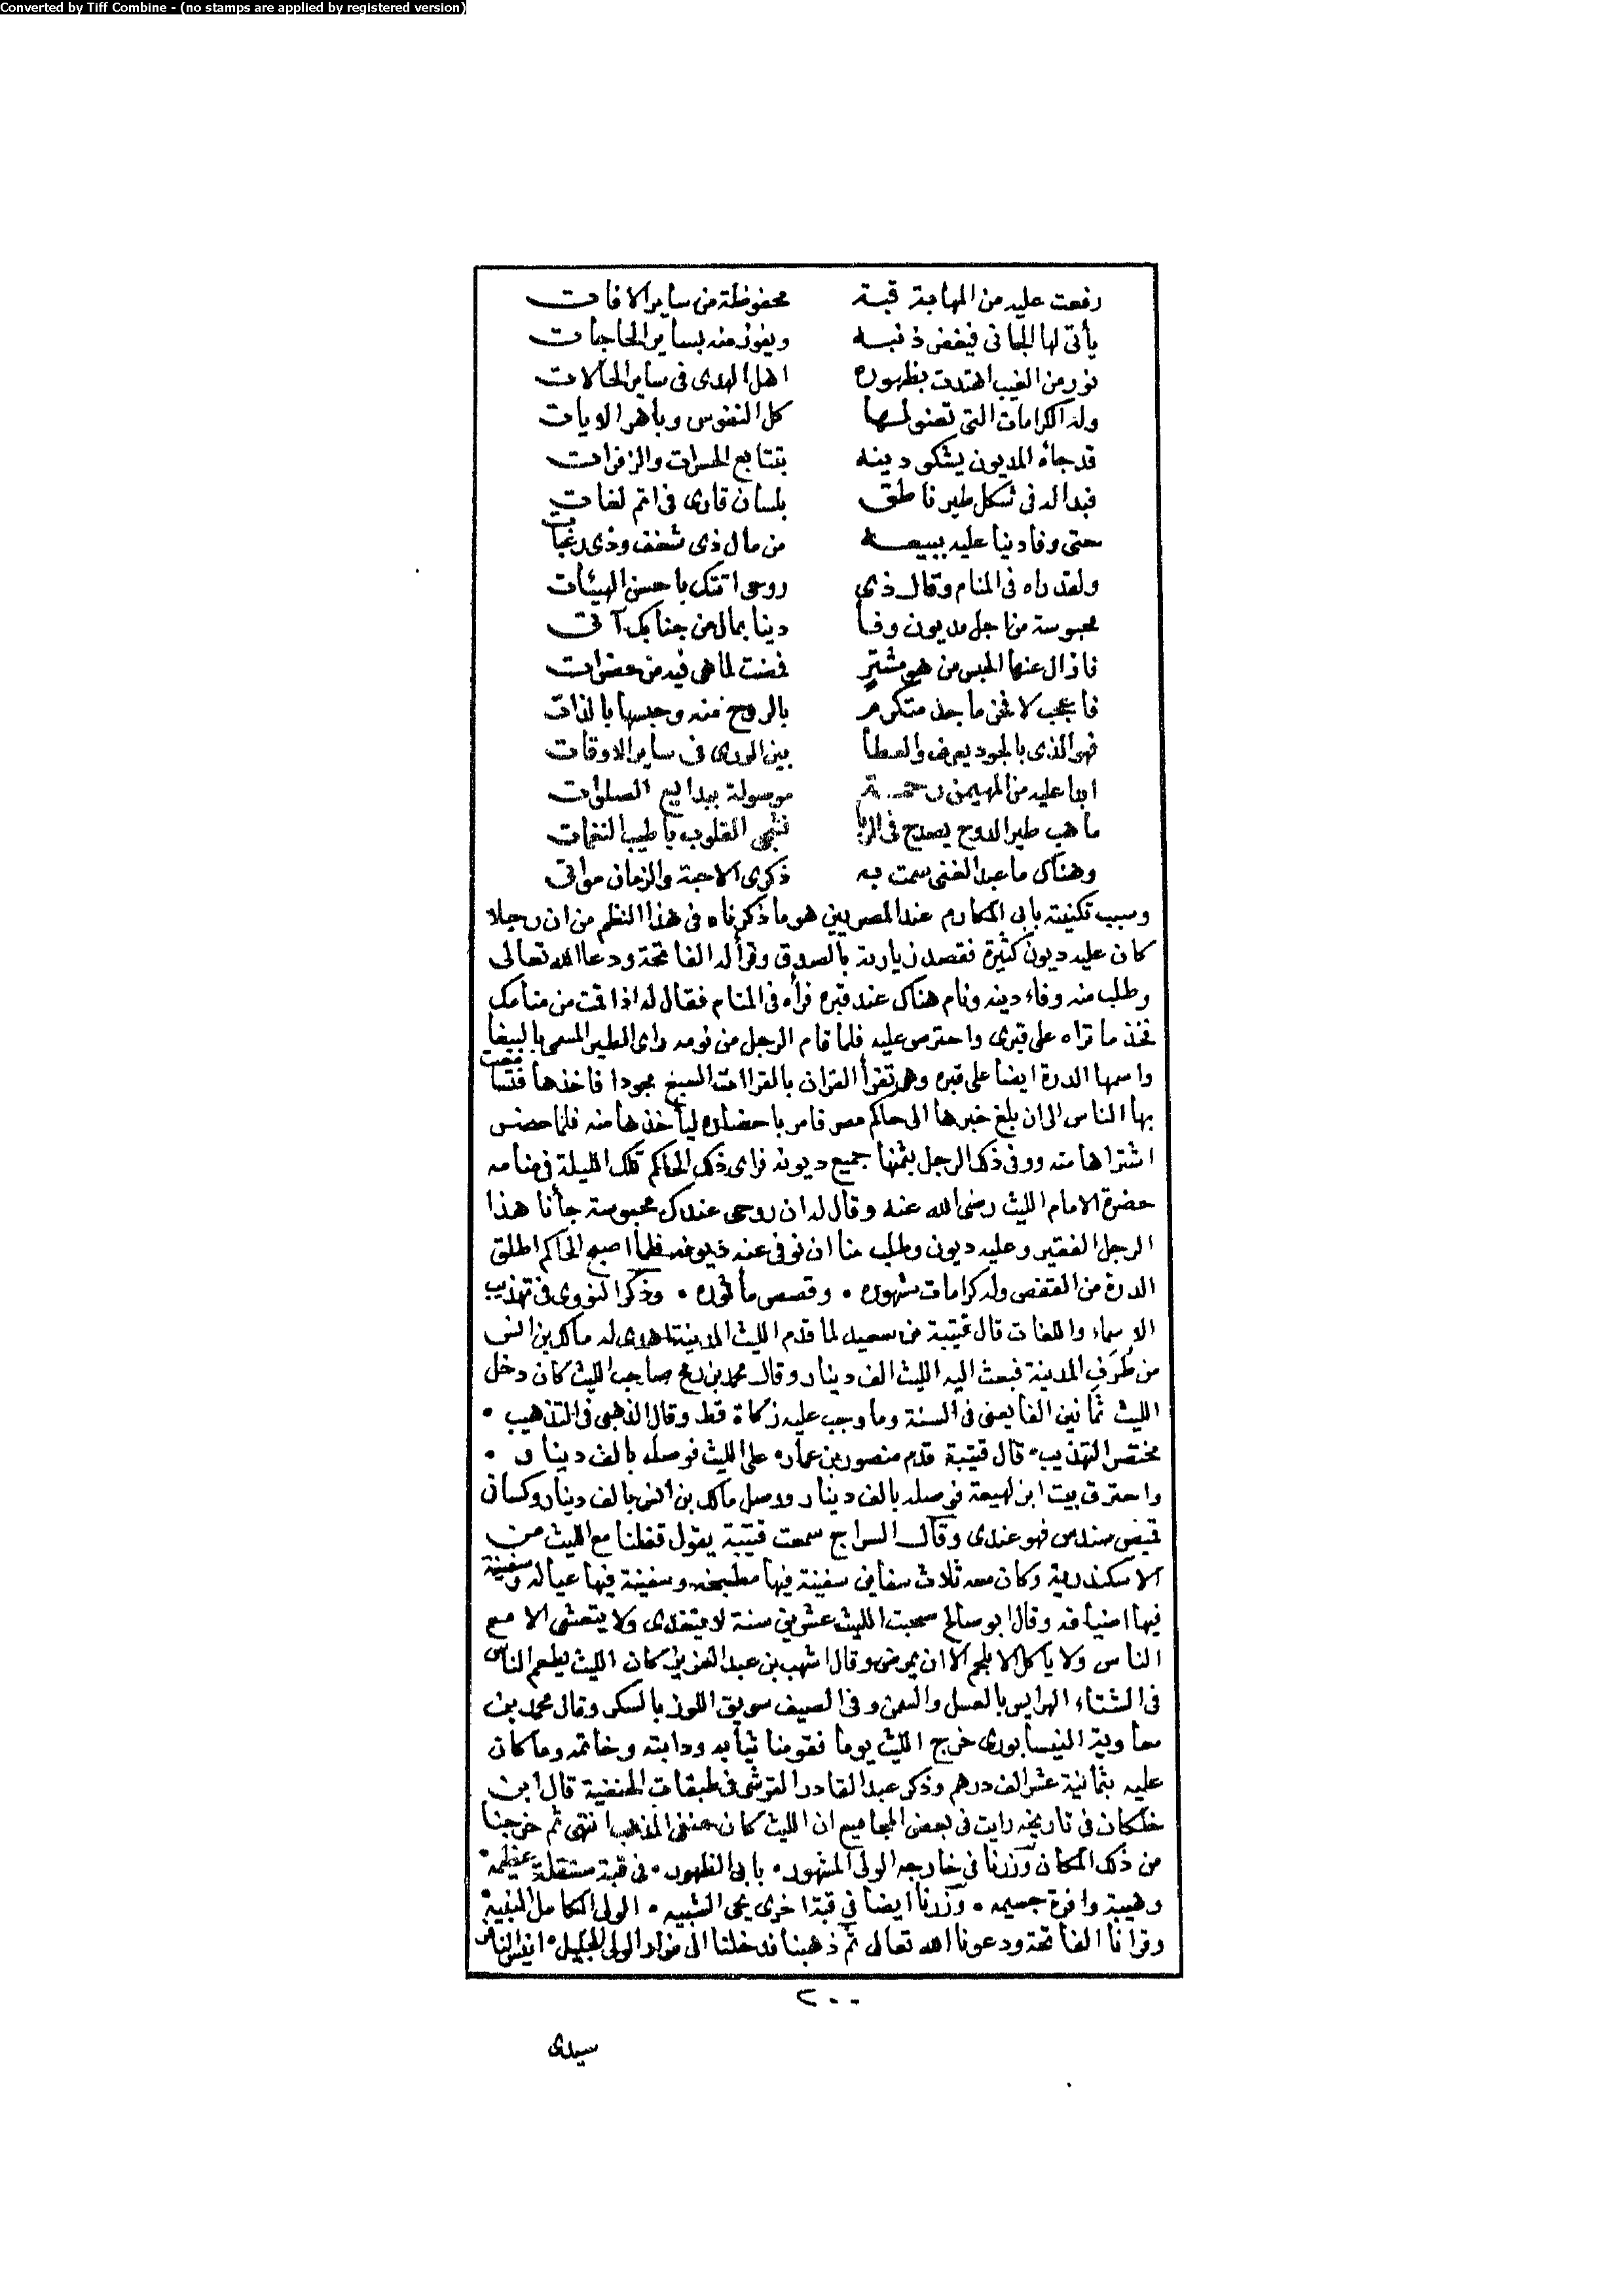 Converted by Tiff Combine - (no stamps are applied by registered version)
رفعت عليه من المهابة قبة محفوظة من ساير الافات
يأتى لها الجانى فيغفر ذنبه ويفوز منه بساير الحاجات
نور من الغيب اهتدت بظهوره اهل الهدى فى ساير الحالات
وله الكرامات التى تعنو لها كل النفوس وباهر الايات
قد جاه المديون يشكو دينه بتتابع الحسرات والزفرات
فبدا له فى شكل طير ناطق بلسان قارى فى اتم لغات
حتى وفا دينا عليه ببيعه من مال ذى شغف وذى رغبات
ولقد راه فى المنام وقال ذى روحى اتتك باحسن الهيئات
محبوسة من اجل مديون وفا دينا بمال من جنابك آتى
فازال عنها الحبس من هو مشترٍ فمضت لما هى فيه من حضرات
فاعجب لاخى ماجد متكرم بالروح منه وحبسها بالذات
فهو الذى بالجود يعرف والعطا بين الورى فى ساير الاوقات
ابدا عليه من المهيمن رحمة موصولة ببدايع الصلوات
ما هب طير الدوح يصدح فى الربا فشجى القلوب باطيب النغمات
وهناك ما عبد الغنى سمت به ذكرى الاحبة والزمان مواتى
وسبب تكنيته بابى المكارم عند المصريين هو ما ذكرناه فى هذا النظم من ان رجلا
كان عليه ديون كثيرة فقصد زيارته بالصدق وقرأ له الفاتحة ودعا الله تعالى
وطلب منه وفاء دينه ونام هناك عند قبره فرأه فى المنام فقال له اذا قمت من منامك
فخذ ما تراه على قبرى واحترس عليه فلما قام الرجل من نومه راى الطير المسمى بالببغا
واسمها الدرة ايضا على قبره وهى تقرأ القران بالقراات السبع مجودا فاخذها فتسامعت
بها الناس الى ان بلغ خبرها الى حاكم مصر فامر باحضاره ليأخذها منه فلما حضر
اشتراها منه ووفى ذلك الرجل بثمنها جميع ديونه فراى ذلك الحاكم تلك الليلة فى منامه
حضرة الامام الليث رضى الله عنه وقال له ان روحى عندك محبوسة جأنا هذا
الرجل الفقير وعليه ديون وطلب منا ان نوفى عنه ديونه فلما اصبح الحاكم اطلق
الدرة من القفص وله كرامات مشهوره • وقصص مأثوره • وذكر النووى فى تهذيب
الاسماء واللغات قال قتيبة بن سعيد لما قدم الليث المدينة اهدى له مالك بن انس
من طُرَفِ المدينة فبعث اليه الليث الف دينار وقال محمد بن رمح صاحب الليث كان دخل
الليث ثمانين الفا يعنى فى السنة وما وجب عليه زكاة قط وقال الذهبى فى التذهيب •
مختصر التهذيب • قال قتيبة قدم منصور بن عمار • على الليث فوصله بالف دينار •
واحترق بيت ابن لهيعة فوصله بالف دينار ووصل مالك بن انس بالف دينار وكسانى
قميص سندس فهو عندى وقال السراج سمعت قتيبة يقول قفلنا مع الليث من
الاسكندرية وكان معه ثلاث سفاين سفينة فيها مطبخه وسفينة فيها عياله وسفينة
فيها اضيافه وقال ابو صالح صحبت الليث عشرين سنة لا يتغدى ولا يتعشى الا مع
الناس ولا ياكل الا بلحم الا ان يمرض وقال اشهب بن عبد العزيز كان الليث يطعم الناس
فى الشتاء الهرايس بالعسل والسمن وفى الصيف سويق اللوز بالسكر وقال محمد بن
معاوية النيسابورى خرج الليث يوما فقومنا ثيابه ودابته وخاتمه وما كان
عليه بثمانية عشر الف درهم وذكر عبد القادر القرشى فى طبقات الحنفية قال ابن
خلكان فى تاريخه رايت فى بعض المجاميع ان الليث كان حنفى المذهب انتهى ثم خرجنا
من ذلك المكان وزرنا فى خارجه الولى المشهور • بابى الظهور • فى قبة مستقلة عظيمه •
وهيبة وافرة جسيمه • وزرنا ايضا فى قبة اخرى يحى الشبيه • الولى الكامل النبيه
وقرانا الفاتحة ودعونا الله تعالى ثم ذهبنا فدخلنا الى مزار الولى الجليل • انفس الناس
٢٠٠
سيدى